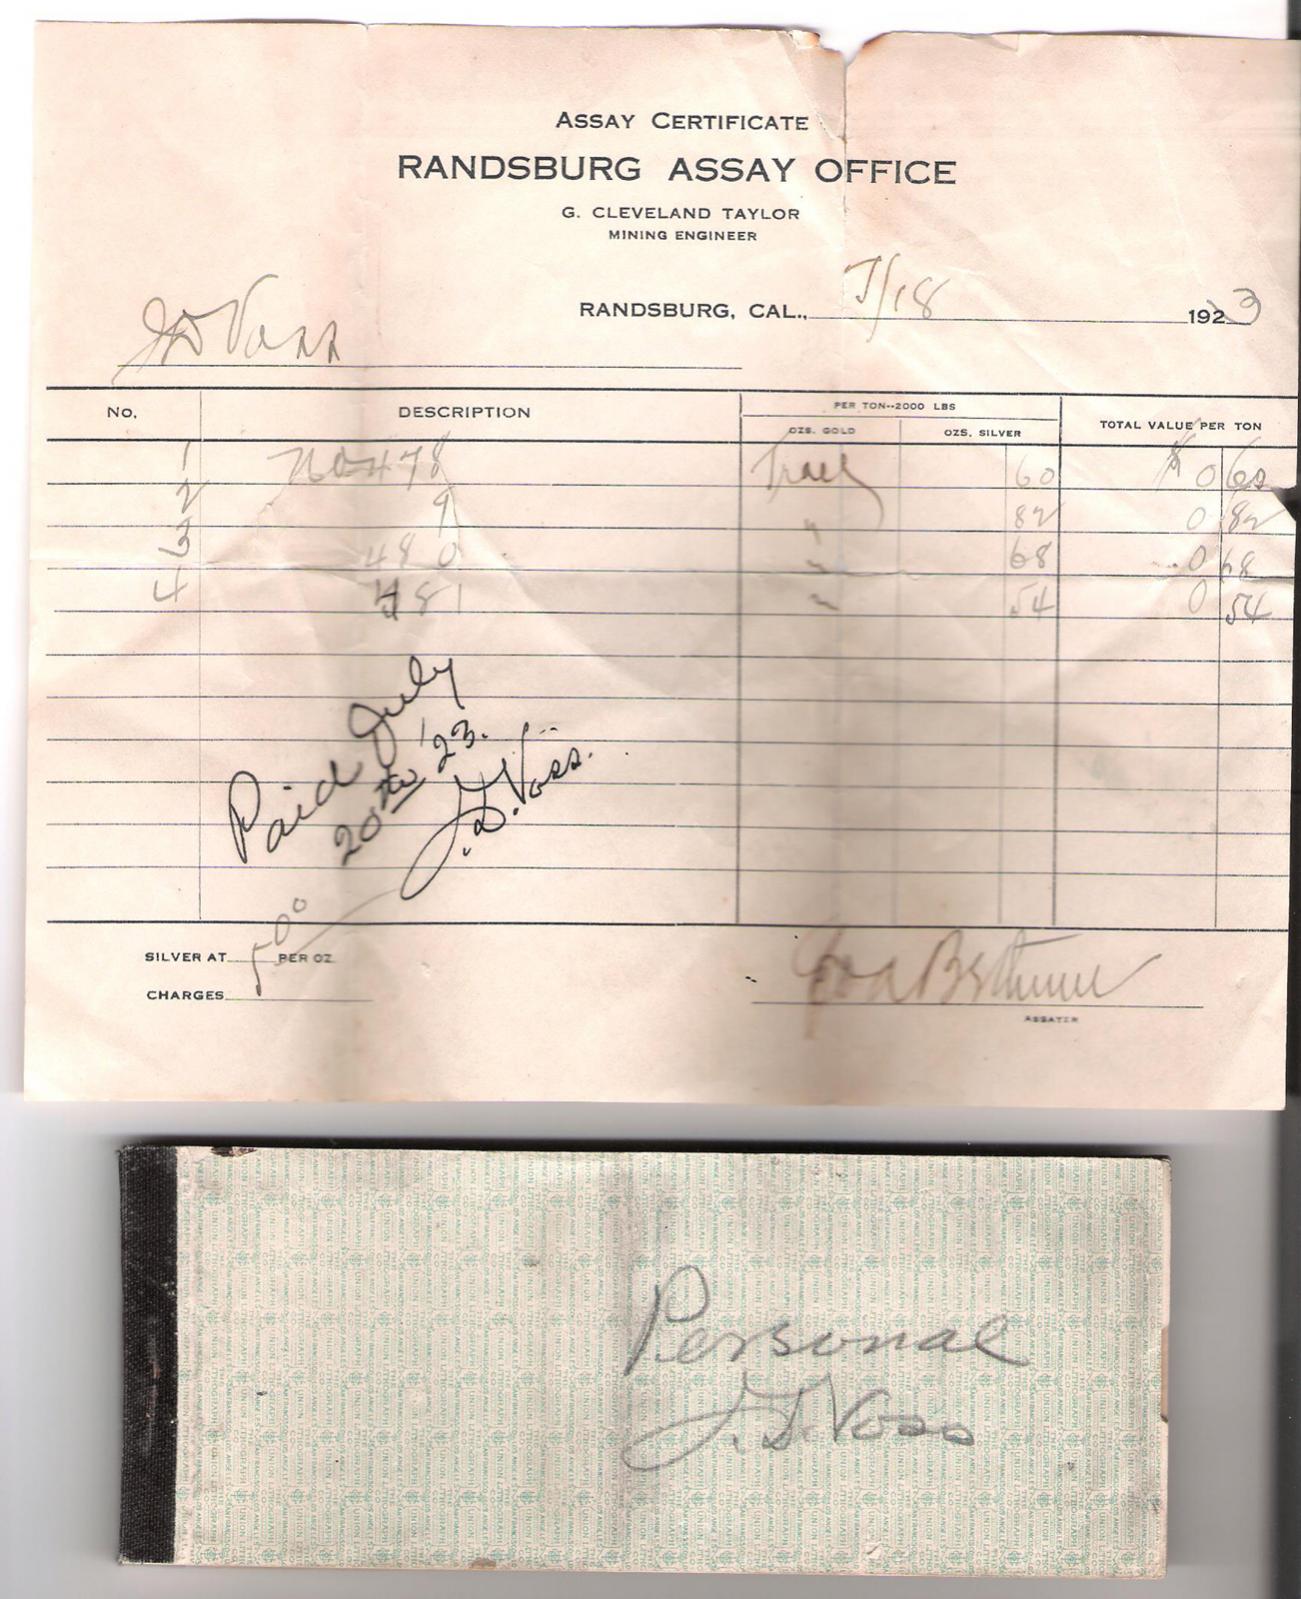 ASSAY CERTIFICATE
RANDSBURG ASSAY OFFICE
G. CLEVELAND TAYLOR
MINING ENGINEER
RANDSBURG, CAL., 7/18 1923
JD Voss
NO. DESCRIPTION PER TON--2000 LBS TOTAL VALUE PER TON
OZS. GOLD OZS. SILVER
1 No 478 Trace 60 $ 0 60
2 9 " 82 0 82
3 480 " 68 0 68
4 481 " 54 0 54
Paid July
20th '23.
J. D. Voss.
SILVER AT PER OZ.
CHARGES 5 00
ASSAYER
Personal
J. D. Voss